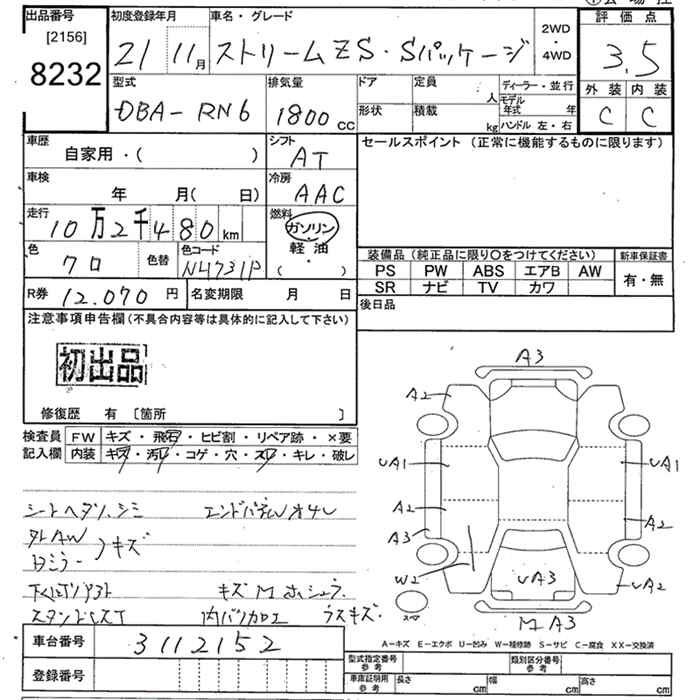 出品番号 初度登録年月 車名・グレード 評価点
[2156] 21 11月 ストリームZS・Sパッケージ 2WD・4WD 3.5
8232
型式 排気量 ドア 定員 人 ディーラー・並行 外装 内装
DBA-RN6 1800cc 形状 積載 kg モデル年式 年 C C
ハンドル 左・右
車歴 シフト セールスポイント(正常に機能するものに限ります)
自家用・( ) AT
車検 冷房
年 月(日) AAC
走行 燃料
10万2千480km ガソリン
色 色替 色コード 軽・油
クロ NH731P ( )
装備品(純正品に限り〇をつけてください) 新車保証書
PS PW ABS エアB AW 有・無
SR ナビ TV カワ
R券 12.070円 名変期限 月 日
後日品
注意事項申告欄(不具合内容等は具体的に記入して下さい)
初出品
修復歴 有 〔箇所 〕
検査員 FW キズ・飛石・ヒビ割・リペア跡・×要
記入欄 内装 キズ・汚レ・コゲ・穴・スレ・キレ・破レ
シートヘタリ、シミ エンドパネルオシ
キズ
キズ
スタンド
内バリカロエ
ラスキズ.
A3
A2
UA1 UA1
A2 A2
A3
W2 UA3 UA2
スペア
M A3
A-キズ E-エクボ U-凹み W-補修跡 S-サビ C-腐食 XX-交換済
車台番号 3112152
型式指定番号 参考 類別区分番号 参考
登録番号
車庫証明用 参考 長さ cm 幅 cm 高さ cm